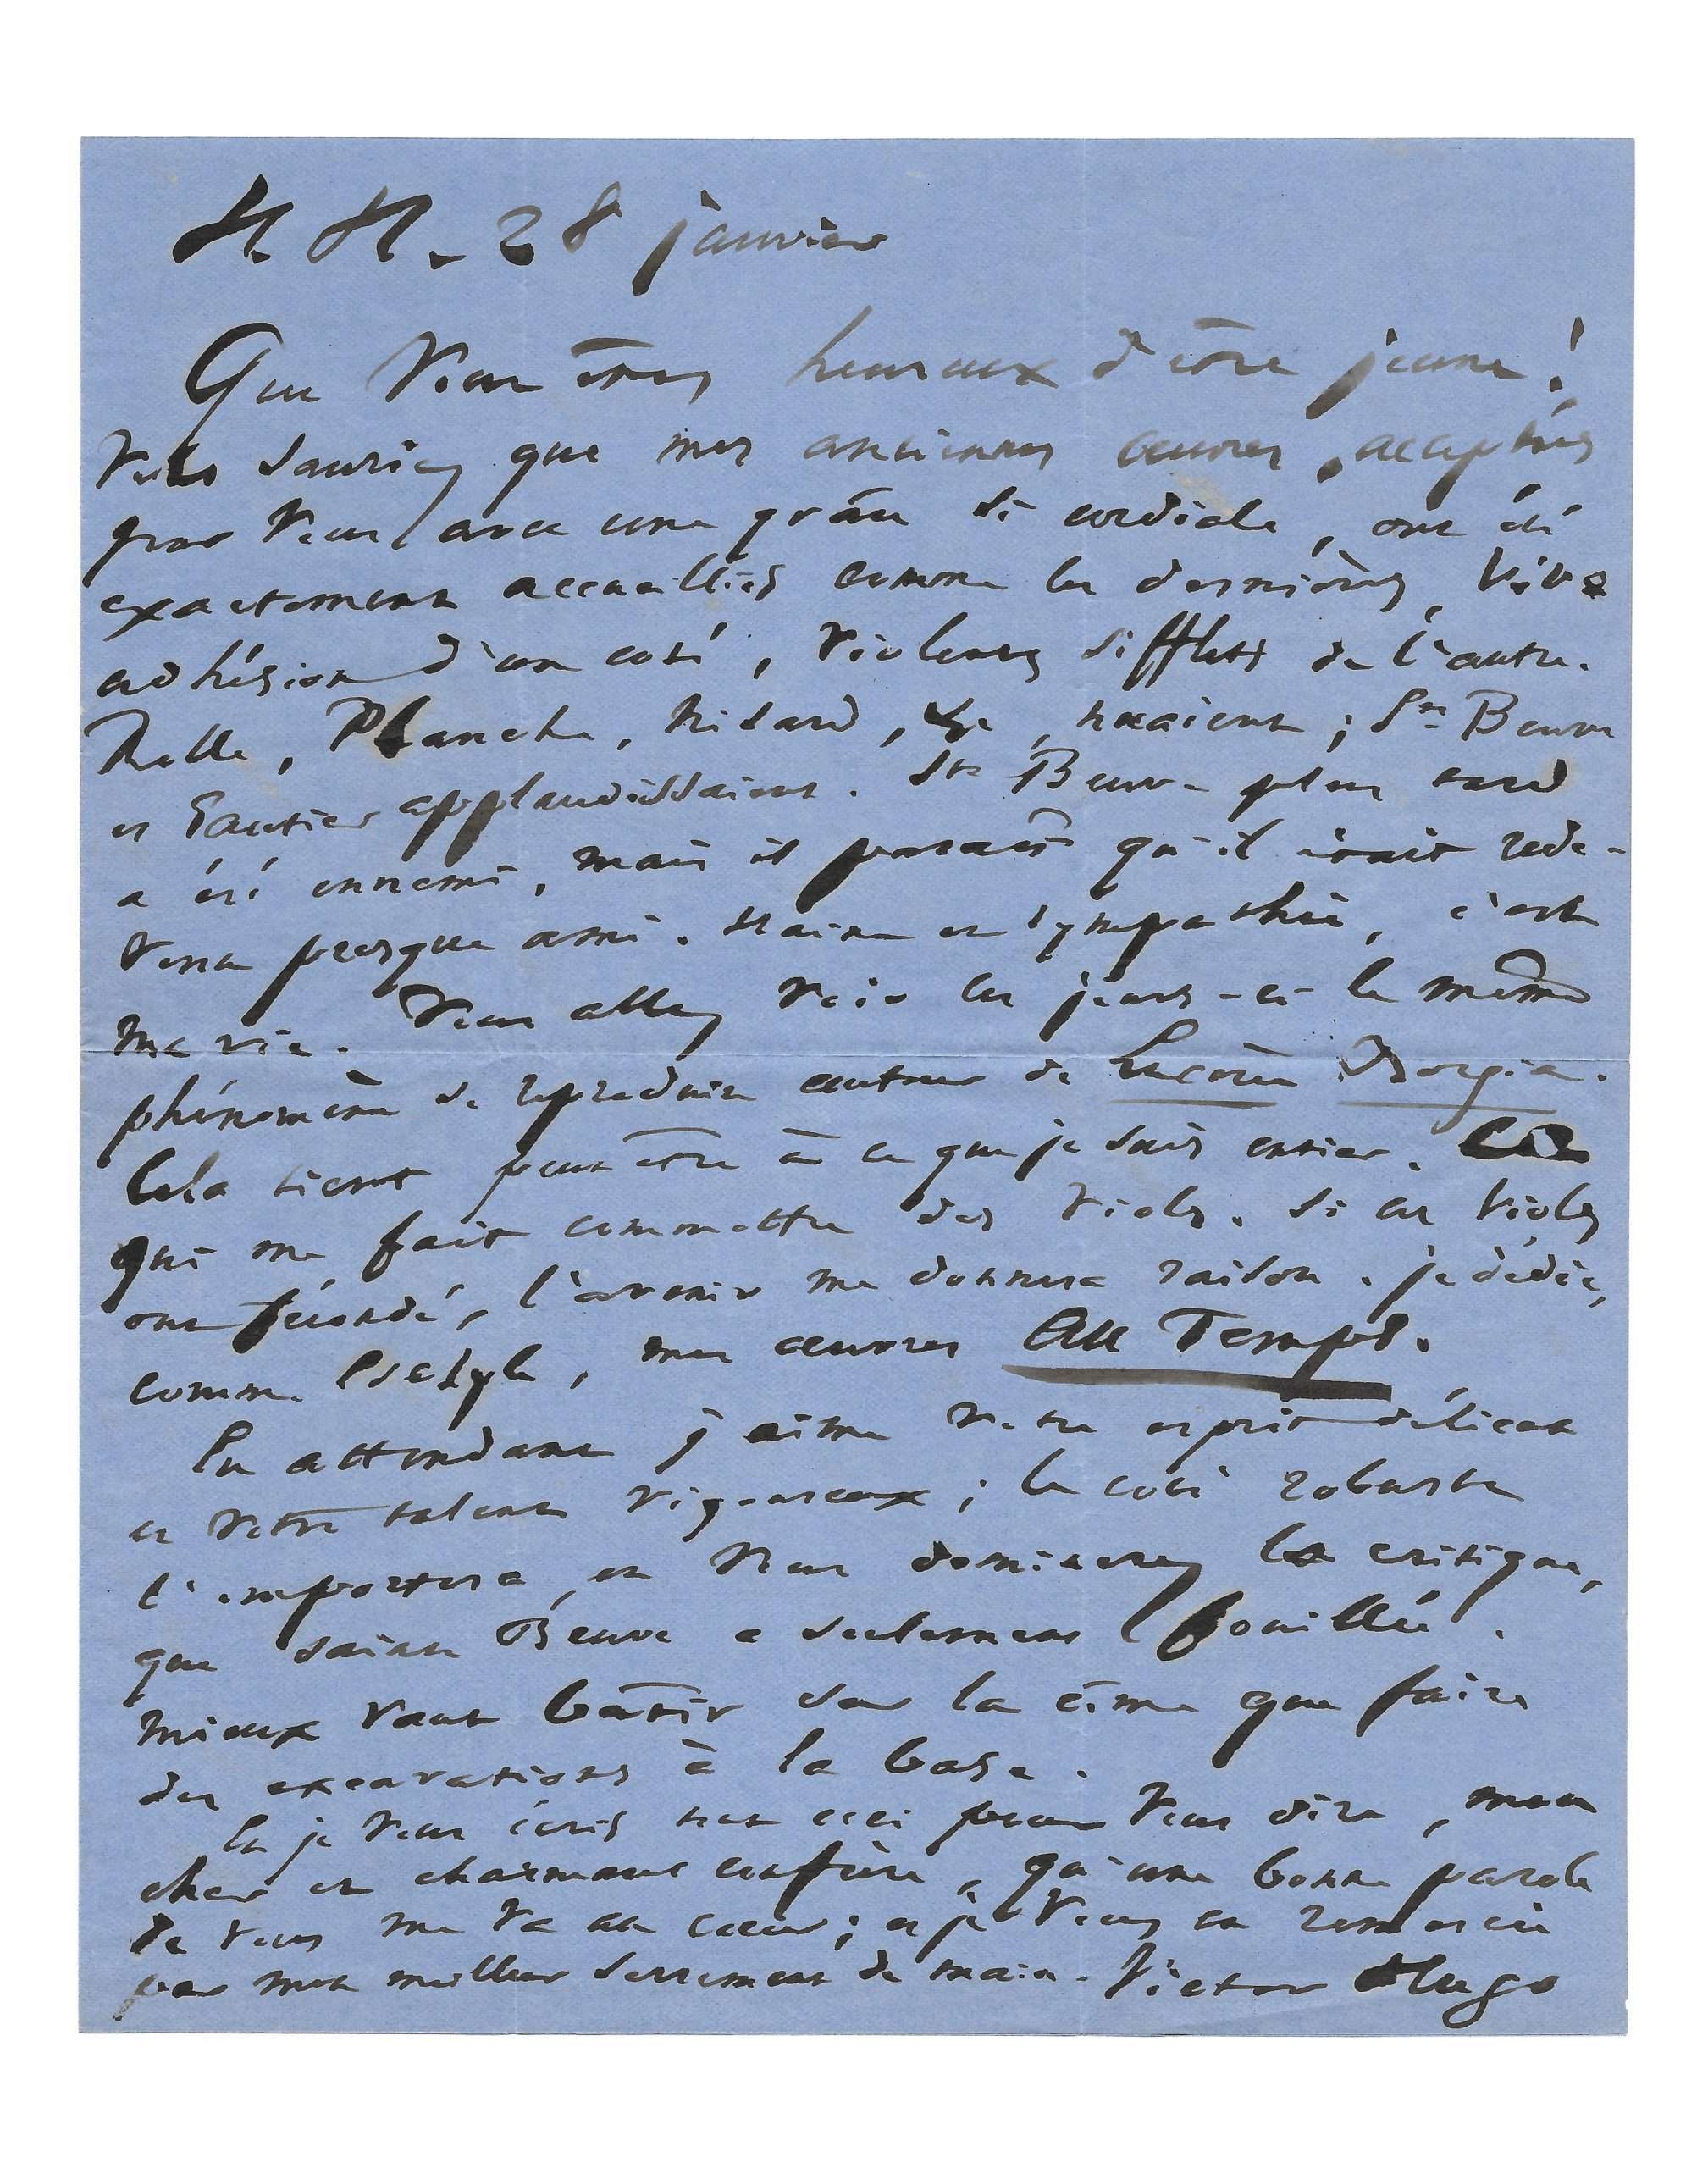 H. H. - 28 janvier
Que vous êtes heureux d'être jeune!
Vous sauriez que mes anciennes œuvres, acceptées
par vous avec une grâce si cordiale, ont été
exactement accueillies comme les dernières, vive
adhésion d'un côté, violents sifflets de l'autre.
Rolle, Planche, Nisard, &c, huaient; Ste Beuve
et Gautier applaudissaient. Ste Beuve plus tard
a été ennemi, mais il paraît qu'il était rede-
venu presque ami. Haine et sympathie, c'est
ma vie. Vous allez voir ces jours-ci le même
phénomène se reproduire autour de Lucrèce Borgia.
Cela tient peut être à ce que je suis entier. Ce
qui me fait commettre des viols. Si ces viols
ont fécondé, l'avenir me donnera raison. je dédie,
comme Eschyle, mes œuvres Au Temps.
En attendant j'aime votre esprit délicat
et votre talent vigoureux; le côté robuste
l'emportera, et vous dominerez la critique,
que Sainte Beuve a seulement fouillée.
Mieux vaut bâtir sur la cîme que faire
des excavations à la base.
Et je vous écris tout ceci pour vous dire, mon
cher et charmant confrère, qu'une bonne parole
de vous me va au cœur; et je vous en remercie
par mon meilleur serrement de main. Victor Hugo